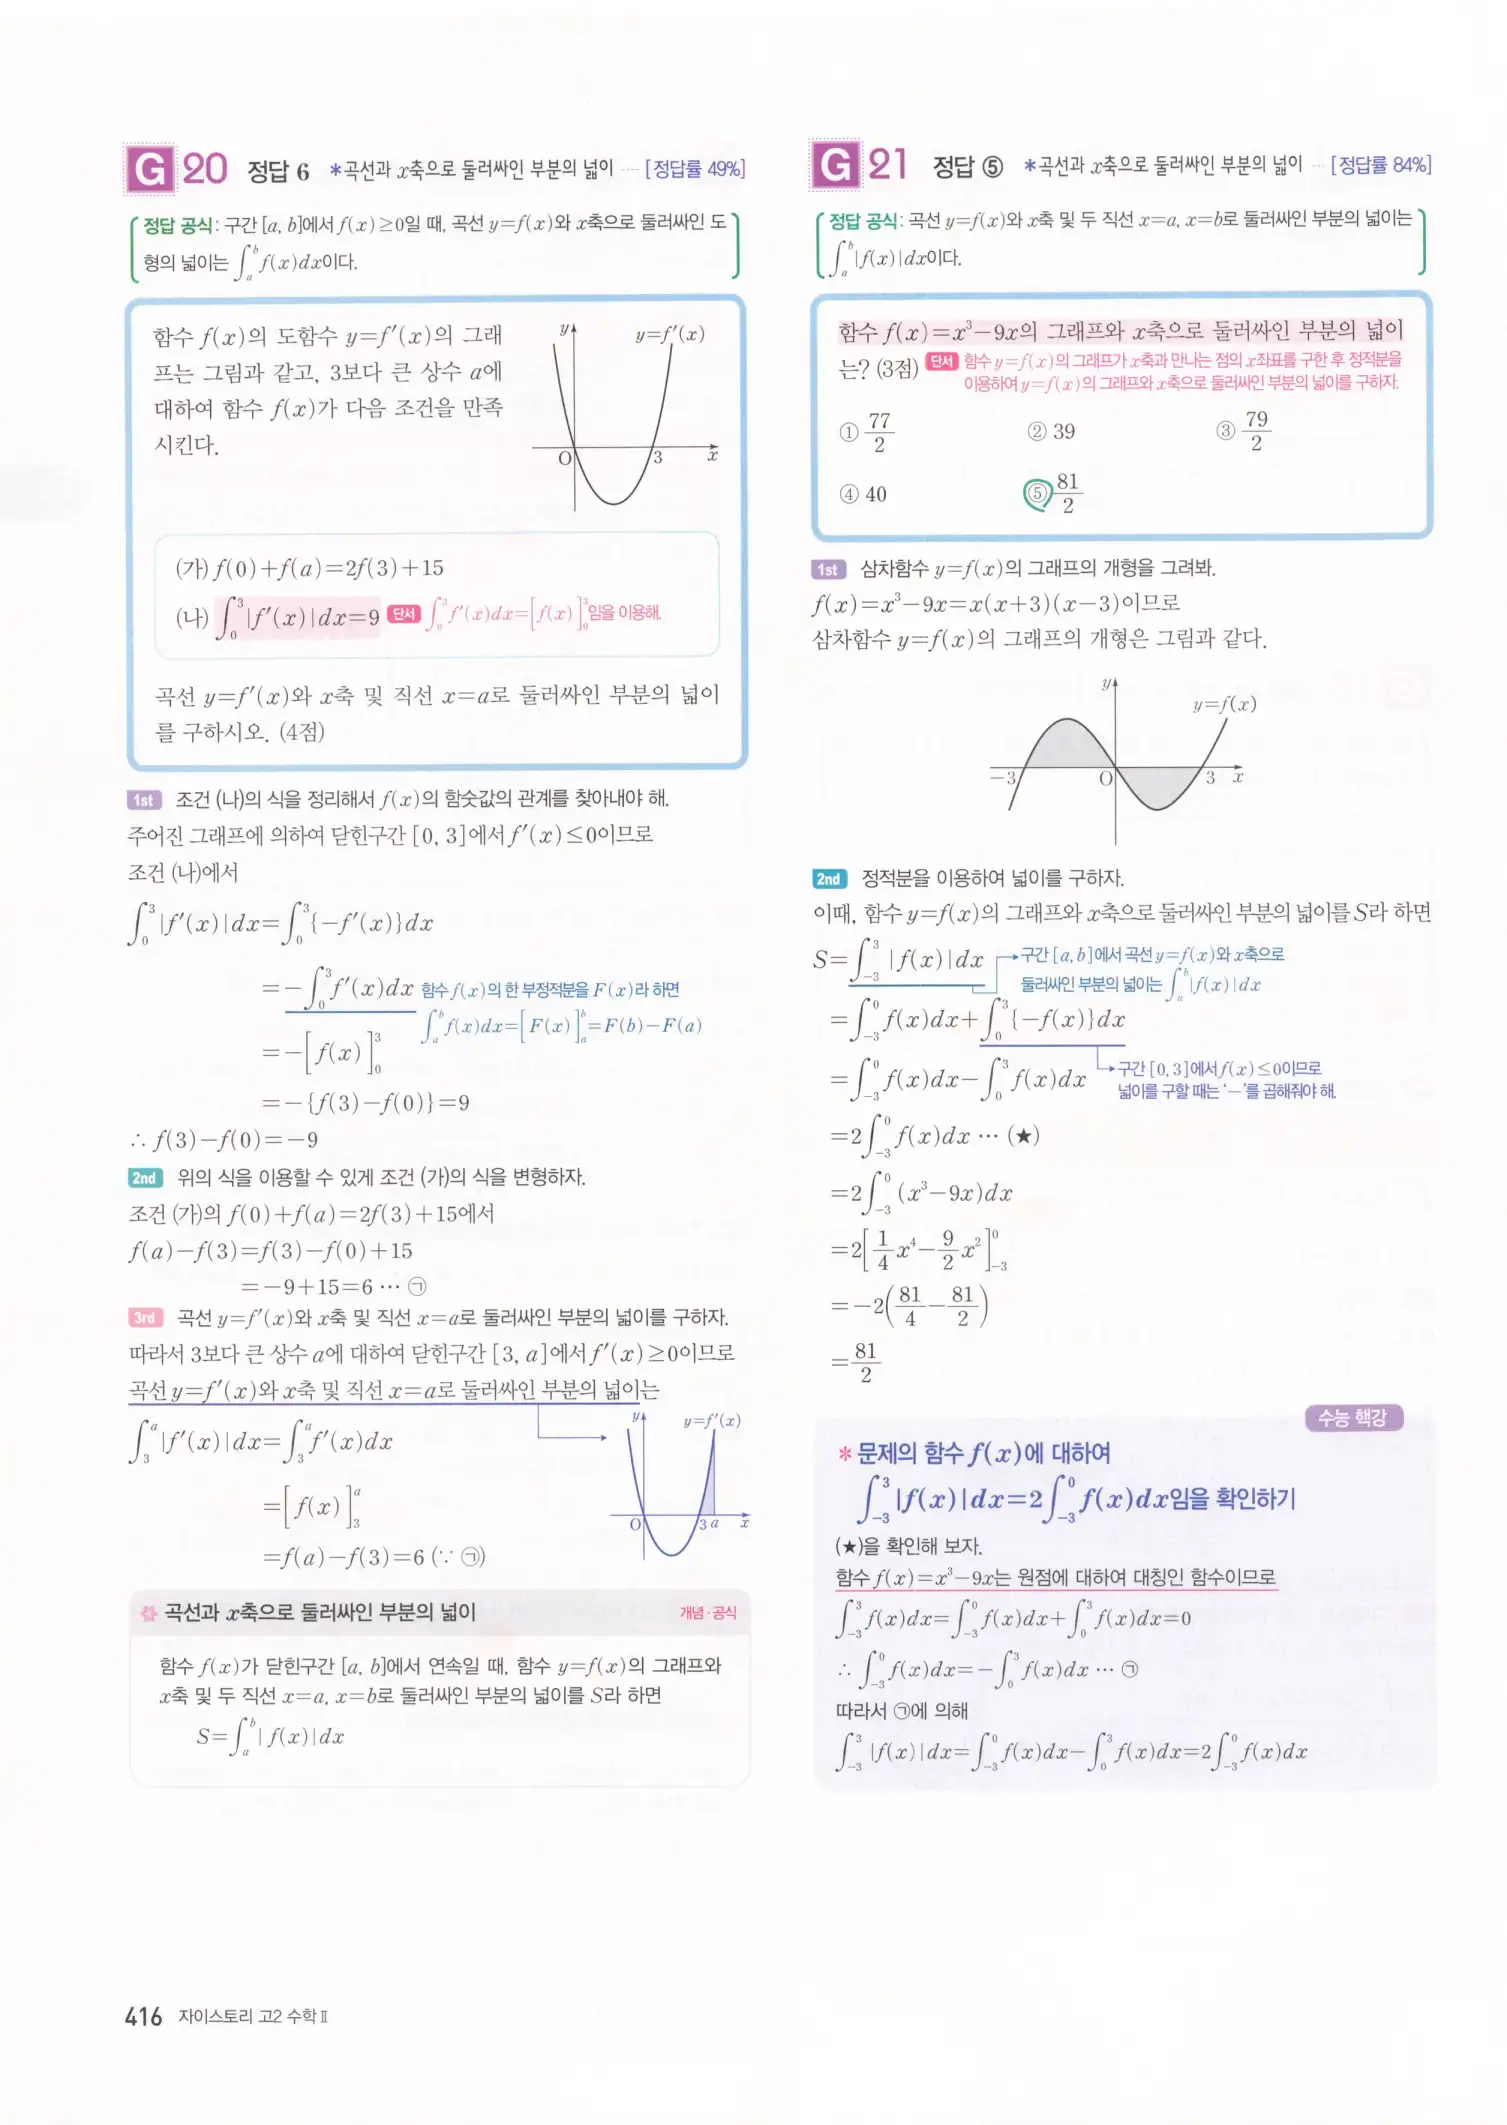 G 20 정답 6 *곡선과 x축으로 둘러싸인 부분의 넓이 ··· [정답률 49%]
정답 공식: 구간 [a, b]에서 f(x)≥0일 때, 곡선 y=f(x)와 x축으로 둘러싸인 도
형의 넓이는 ∫_a^b f(x)dx이다.
함수 f(x)의 도함수 y=f′(x)의 그래
프는 그림과 같고, 3보다 큰 상수 a에
대하여 함수 f(x)가 다음 조건을 만족
시킨다.
y y=f′(x)
O 3 x
(가) f(0)+f(a)=2f(3)+15
(나) ∫_0^3 |f′(x)|dx=9 단서 ∫_0^3 f′(x)dx=[f(x)]_0^3임을 이용해.
곡선 y=f′(x)와 x축 및 직선 x=a로 둘러싸인 부분의 넓이
를 구하시오. (4점)
1st 조건 (나)의 식을 정리해서 f(x)의 함숫값의 관계를 찾아내야 해.
주어진 그래프에 의하여 닫힌구간 [0, 3]에서 f′(x)≤0이므로
조건 (나)에서
∫_0^3 |f′(x)|dx=∫_0^3 {−f′(x)}dx
=−∫_0^3 f′(x)dx 함수 f(x)의 한 부정적분을 F(x)라 하면
∫_a^b f(x)dx=[F(x)]_a^b=F(b)−F(a)
=−[f(x)]_0^3
=−{f(3)−f(0)}=9
∴ f(3)−f(0)=−9
2nd 위의 식을 이용할 수 있게 조건 (가)의 식을 변형하자.
조건 (가)의 f(0)+f(a)=2f(3)+15에서
f(a)−f(3)=f(3)−f(0)+15
=−9+15=6 ··· ㉠
3rd 곡선 y=f′(x)와 x축 및 직선 x=a로 둘러싸인 부분의 넓이를 구하자.
따라서 3보다 큰 상수 a에 대하여 닫힌구간 [3, a]에서 f′(x)≥0이므로
곡선 y=f′(x)와 x축 및 직선 x=a로 둘러싸인 부분의 넓이는
∫_3^a |f′(x)|dx=∫_3^a f′(x)dx
=[f(x)]_3^a
=f(a)−f(3)=6 (∵ ㉠)
y y=f′(x)
O 3 a x
곡선과 x축으로 둘러싸인 부분의 넓이 개념·공식
함수 f(x)가 닫힌구간 [a, b]에서 연속일 때, 함수 y=f(x)의 그래프와
x축 및 두 직선 x=a, x=b로 둘러싸인 부분의 넓이를 S라 하면
S=∫_a^b |f(x)|dx
G 21 정답 ⑤ *곡선과 x축으로 둘러싸인 부분의 넓이 ··· [정답률 84%]
정답 공식: 곡선 y=f(x)와 x축 및 두 직선 x=a, x=b로 둘러싸인 부분의 넓이는
∫_a^b |f(x)|dx이다.
함수 f(x)=x³−9x의 그래프와 x축으로 둘러싸인 부분의 넓이
는? (3점) 단서 함수 y=f(x)의 그래프가 x축과 만나는 점의 x좌표를 구한 후 정적분을
이용하여 y=f(x)의 그래프와 x축으로 둘러싸인 부분의 넓이를 구하자.
① 77/2 ② 39 ③ 79/2
④ 40 ⑤ 81/2
1st 삼차함수 y=f(x)의 그래프의 개형을 그려봐.
f(x)=x³−9x=x(x+3)(x−3)이므로
삼차함수 y=f(x)의 그래프의 개형은 그림과 같다.
y y=f(x)
−3 O 3 x
2nd 정적분을 이용하여 넓이를 구하자.
이때, 함수 y=f(x)의 그래프와 x축으로 둘러싸인 부분의 넓이를 S라 하면
S=∫_{−3}^3 |f(x)|dx 구간 [a, b]에서 곡선 y=f(x)와 x축으로
둘러싸인 부분의 넓이는 ∫_a^b |f(x)|dx
=∫_{−3}^0 f(x)dx+∫_0^3 {−f(x)}dx
=∫_{−3}^0 f(x)dx−∫_0^3 f(x)dx 구간 [0, 3]에서 f(x)≤0이므로
넓이를 구할 때는 ‘−’를 곱해줘야 해.
=2∫_{−3}^0 f(x)dx ··· (★)
=2∫_{−3}^0 (x³−9x)dx
=2[1/4 x⁴−9/2 x²]_{−3}^0
=−2(81/4−81/2)
=81/2
수능 핵강
*문제의 함수 f(x)에 대하여
∫_{−3}^3 |f(x)|dx=2∫_{−3}^0 f(x)dx임을 확인하기
(★)을 확인해 보자.
함수 f(x)=x³−9x는 원점에 대하여 대칭인 함수이므로
∫_{−3}^3 f(x)dx=∫_{−3}^0 f(x)dx+∫_0^3 f(x)dx=0
∴ ∫_{−3}^0 f(x)dx=−∫_0^3 f(x)dx ··· ㉠
따라서 ㉠에 의해
∫_{−3}^3 |f(x)|dx=∫_{−3}^0 f(x)dx−∫_0^3 f(x)dx=2∫_{−3}^0 f(x)dx
416 자이스토리 고2 수학 Ⅱ